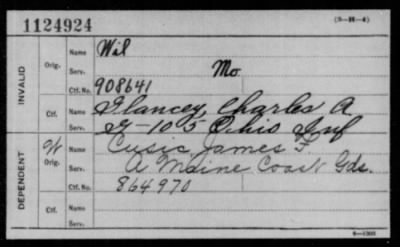 1124924
(3—H—4)
INVALID
Orig. Name Wil
Serv. Mo
Ctf. No. 908641
Ctf. Name Glancey, Charles A
Serv. G-105 Ohio Inf
DEPENDENT
W Orig. Name Cusic James F
Serv. A Maine Coast Gds.
Ctf. No. 864970
Ctf. Name
Serv.
6—1303